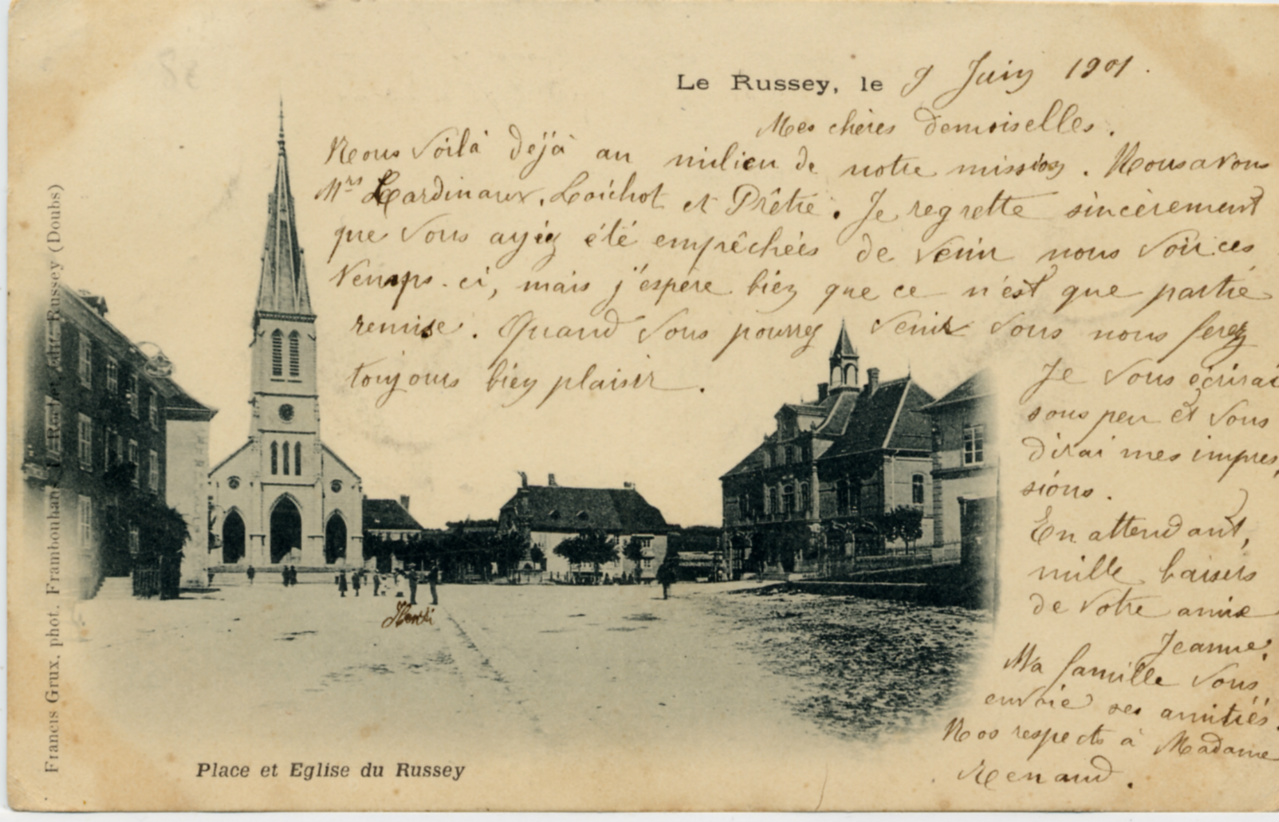 Le Russey, le 9 Juin 1901.
Mes chères demoiselles.
Nous voilà déjà au milieu de notre mission. Nous avons
Mrs Cardinaux, Loichot et Prêtre. Je regrette sincèrement
que vous ayiez été empêchées de venir nous voir ces
temps-ci, mais j'espère bien que ce n'est que partie
remise. Quand vous pourrez venir vous nous ferez
toujours bien plaisir.
Je vous écrirai
sous peu et vous
dirai mes impres
sions.
En attendant,
mille baisers
de votre amie
Jeanne.
Ma famille vous
envoie ses amitiés.
Nos respects à Madame
Renaud.
Henri
Place et Eglise du Russey
Francis Grux, phot. Frambouhans, Russey (Doubs)